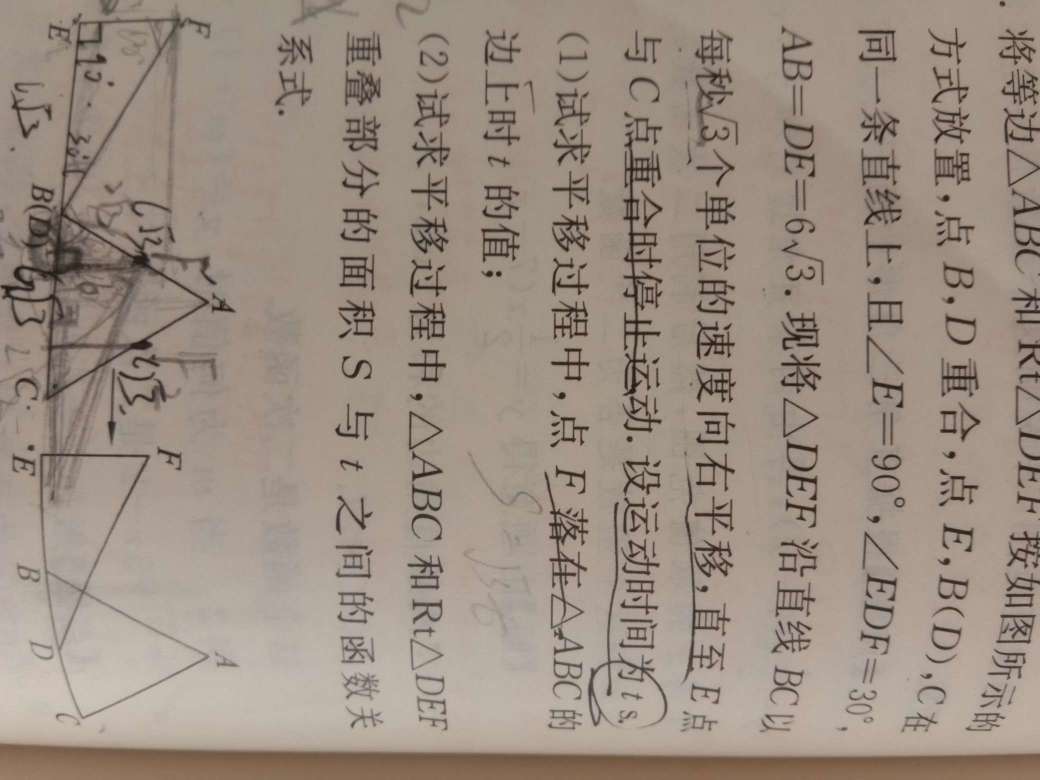 将等边△ABC和Rt△DEF按如图所示的
方式放置,点B,D重合,点E,B(D),C在
同一条直线上,且∠E=90°,∠EDF=30°,
AB=DE=6√3.现将△DEF沿直线BC以
每秒√3个单位的速度向右平移,直至E点
与C点重合时停止运动.设运动时间为t s.
(1)试求平移过程中,点F落在△ABC的
边上时t的值;
(2)试求平移过程中,△ABC和Rt△DEF
重叠部分的面积S与t之间的函数关
系式.
F
A
E
90°
30°
B(D)
C
6√3
6√3
F
A
E
B
D
C